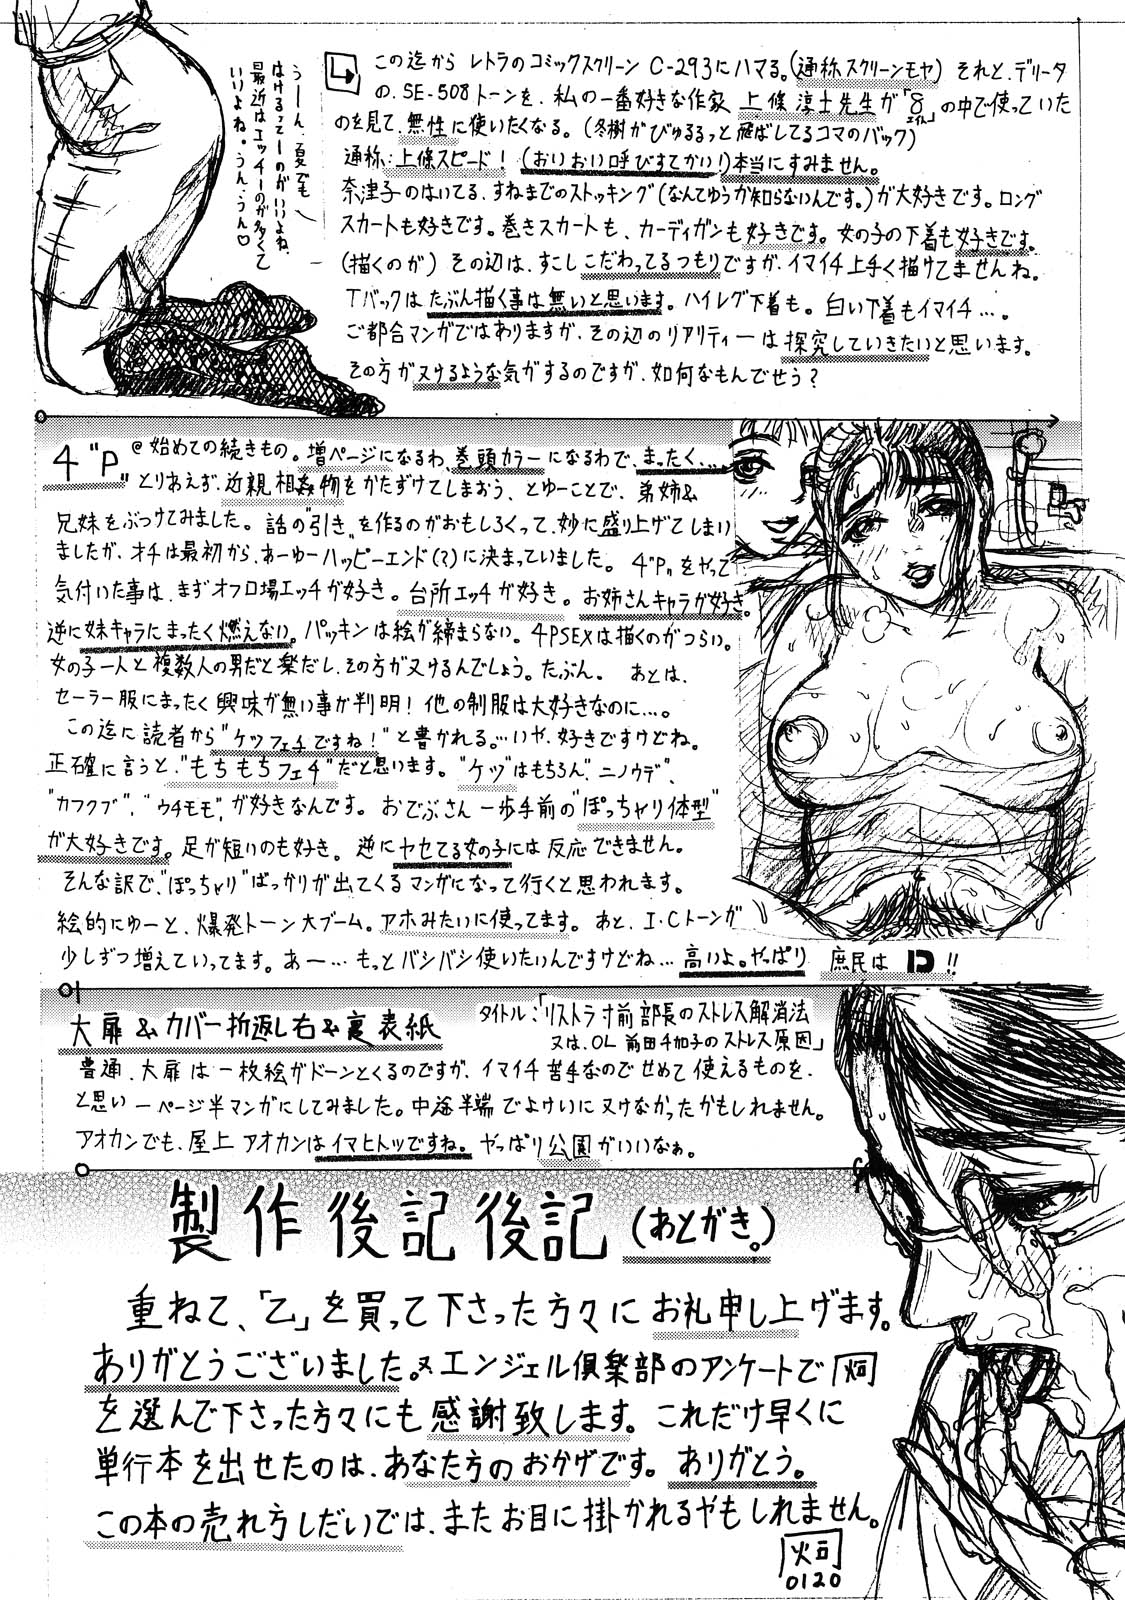 この迄から レトラのコミックスクリーン C-293にハマる。(通称スクリーンモヤ) それと、デリータ
の、SE-508トーンを、私の一番好きな作家 上條淳士先生が「8」の中で使っていた
エイト
のを見て、無性に使いたくなる。(冬樹がびゅるるっと飛ばしてるコマのバック)
通称:上條スピード! (おいおい呼びすてかい!) 本当にすみません。
奈津子のはいてる、すねまでのストッキング(なんてゆうか知らないんです。)が大好きです。ロング
スカートも好きです。巻きスカートも、カーディガンも好きです。女の子の下着も好きです。
(描くのが) その辺は、すこしこだわってるつもりですが、イマイチ上手く描けてませんね。
Tバックはたぶん描く事は無いと思います。ハイレグ下着も。白い下着もイマイチ…。
ご都合マンガではありますが、その辺のリアリティーは探究していきたいと思います。
その方がヌけるような気がするのですが、如何なもんでせう?
うーん、夏でも
はけるってーのがいいよね、
最近はエッチーのが多くて
いいよね。うん、うん♡
4"P" @始めての続きもの。増ページになるわ、巻頭カラーになるわで、まったく…。
とりあえず、近親相姦物をかたずけてしまおう、とゆーことで、弟姉&
兄妹をぶつけてみました。話の"引き"を作るのがおもしろくって、妙に盛り上げてしまい
ましたが、オチは最初から、あーゆーハッピーエンド(?)に決まっていました。4"P"をやって
気付いた事は、まずオフロ場エッチが好き。台所エッチが好き。お姉さんキャラが好き。
逆に妹キャラにまったく燃えない。パッキンは絵が締まらない。4PSEXは描くのがつらい。
女の子一人と複数人の男だと楽だし、その方がヌけるんでしょう。たぶん。 あとは、
セーラー服にまったく興味が無い事が判明! 他の制服は大好きなのに…。
この迄に読者から"ケツフェチですね!"と書かれる。…いや、好きですけどね。
正確に言うと、"もちもちフェチ"だと思います。"ケツ"はもちろん、"ニノウデ"、
"カフクブ"、"ウチモモ"、が好きなんです。おでぶさん一歩手前の"ぽっちゃり体型"
が大好きです。足が短いのも好き。逆にヤセてる女の子には反応できません。
そんな訳で、"ぽっちゃり"ばっかりが出てくるマンガになって行くと思われます。
絵的にゆーと、爆発トーン大ブーム。アホみたいに使ってます。あと、I・Cトーンが
少しずつ増えていってます。あー…もっとバシバシ使いたいんですけどね…高いよ。やっぱり 庶民は !!
大扉&カバー折返し右&裏表紙
タイトル:「リストラ寸前部長のストレス解消法
又は、OL 前田千加子のストレス原因」
普通、大扉は一枚絵がドーンとくるのですが、イマイチ苦手なのでせめて使えるものを、
と思い一ページ半マンガにしてみました。中途半端でよけいにヌけなかったかもしれません。
アオカンでも、屋上アオカンはイマヒトツですね。やっぱり公園がいいなぁ。
製作後記後記(あとがき。)
重ねて、「乙」を買って下さった方々にお礼申し上げます。
ありがとうございました。又エンジェル倶楽部のアンケートで㷎
を選んで下さった方々にも感謝致します。これだけ早くに
単行本を出せたのは、あなた方のおかげです。ありがとう。
この本の売れ方しだいでは、またお目に掛かれるやもしれません。
0120